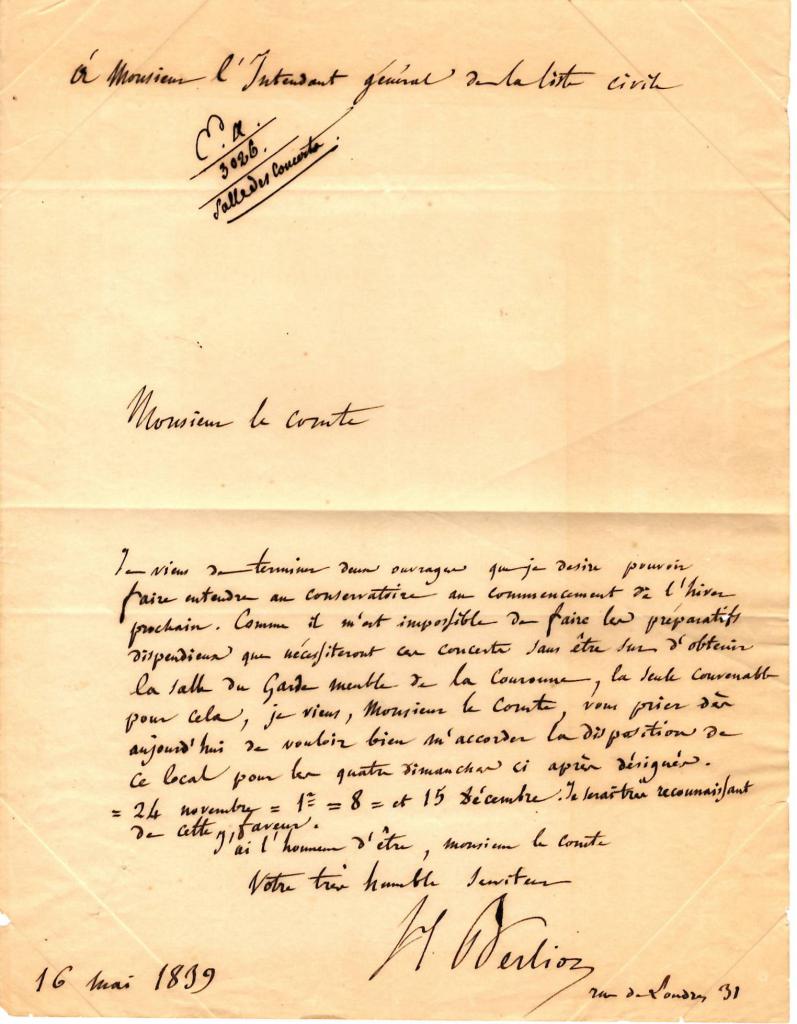 à Monsieur l'Intendant général de la liste civile
C. A.
3026.
Salle des Concerts
Monsieur le comte
Je viens de terminer deux ouvrages que je desire pouvoir
faire entendre au conservatoire au commencement de l'hiver
prochain. Comme il m'est impossible de faire les préparatifs
dispendieux que nécessiteront ces concerts sans être sur d'obtenir
la salle du Garde meuble de la Couronne, la seule convenable
pour cela, je viens, Monsieur le Comte, vous prier dès
aujourd'hui de vouloir bien m'accorder la disposition de
ce local pour les quatre dimanches ci après désignés.
= 24 novembre = 1er = 8 = et 15 Décembre. Je serai très reconnaissant
de cette faveur.
J'ai l'honneur d'être, monsieur le comte
Votre très humble serviteur
H Berlioz
16 mai 1839
rue de Londres 31